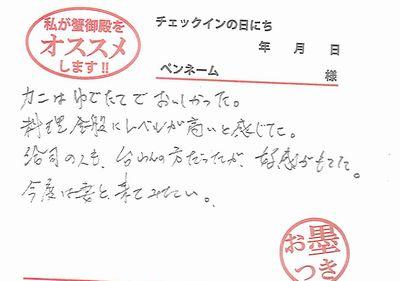 私が蟹御殿を
オススメ
します!!
チェックインの日にち
年 月 日
ペンネーム 様
カニはゆでたてでおいしかった。
料理全般にレベルが高いと感じた。
給司の人も、台わんの方だったが、好感がもてた。
今度は妻と来てみたい。
お墨
つき